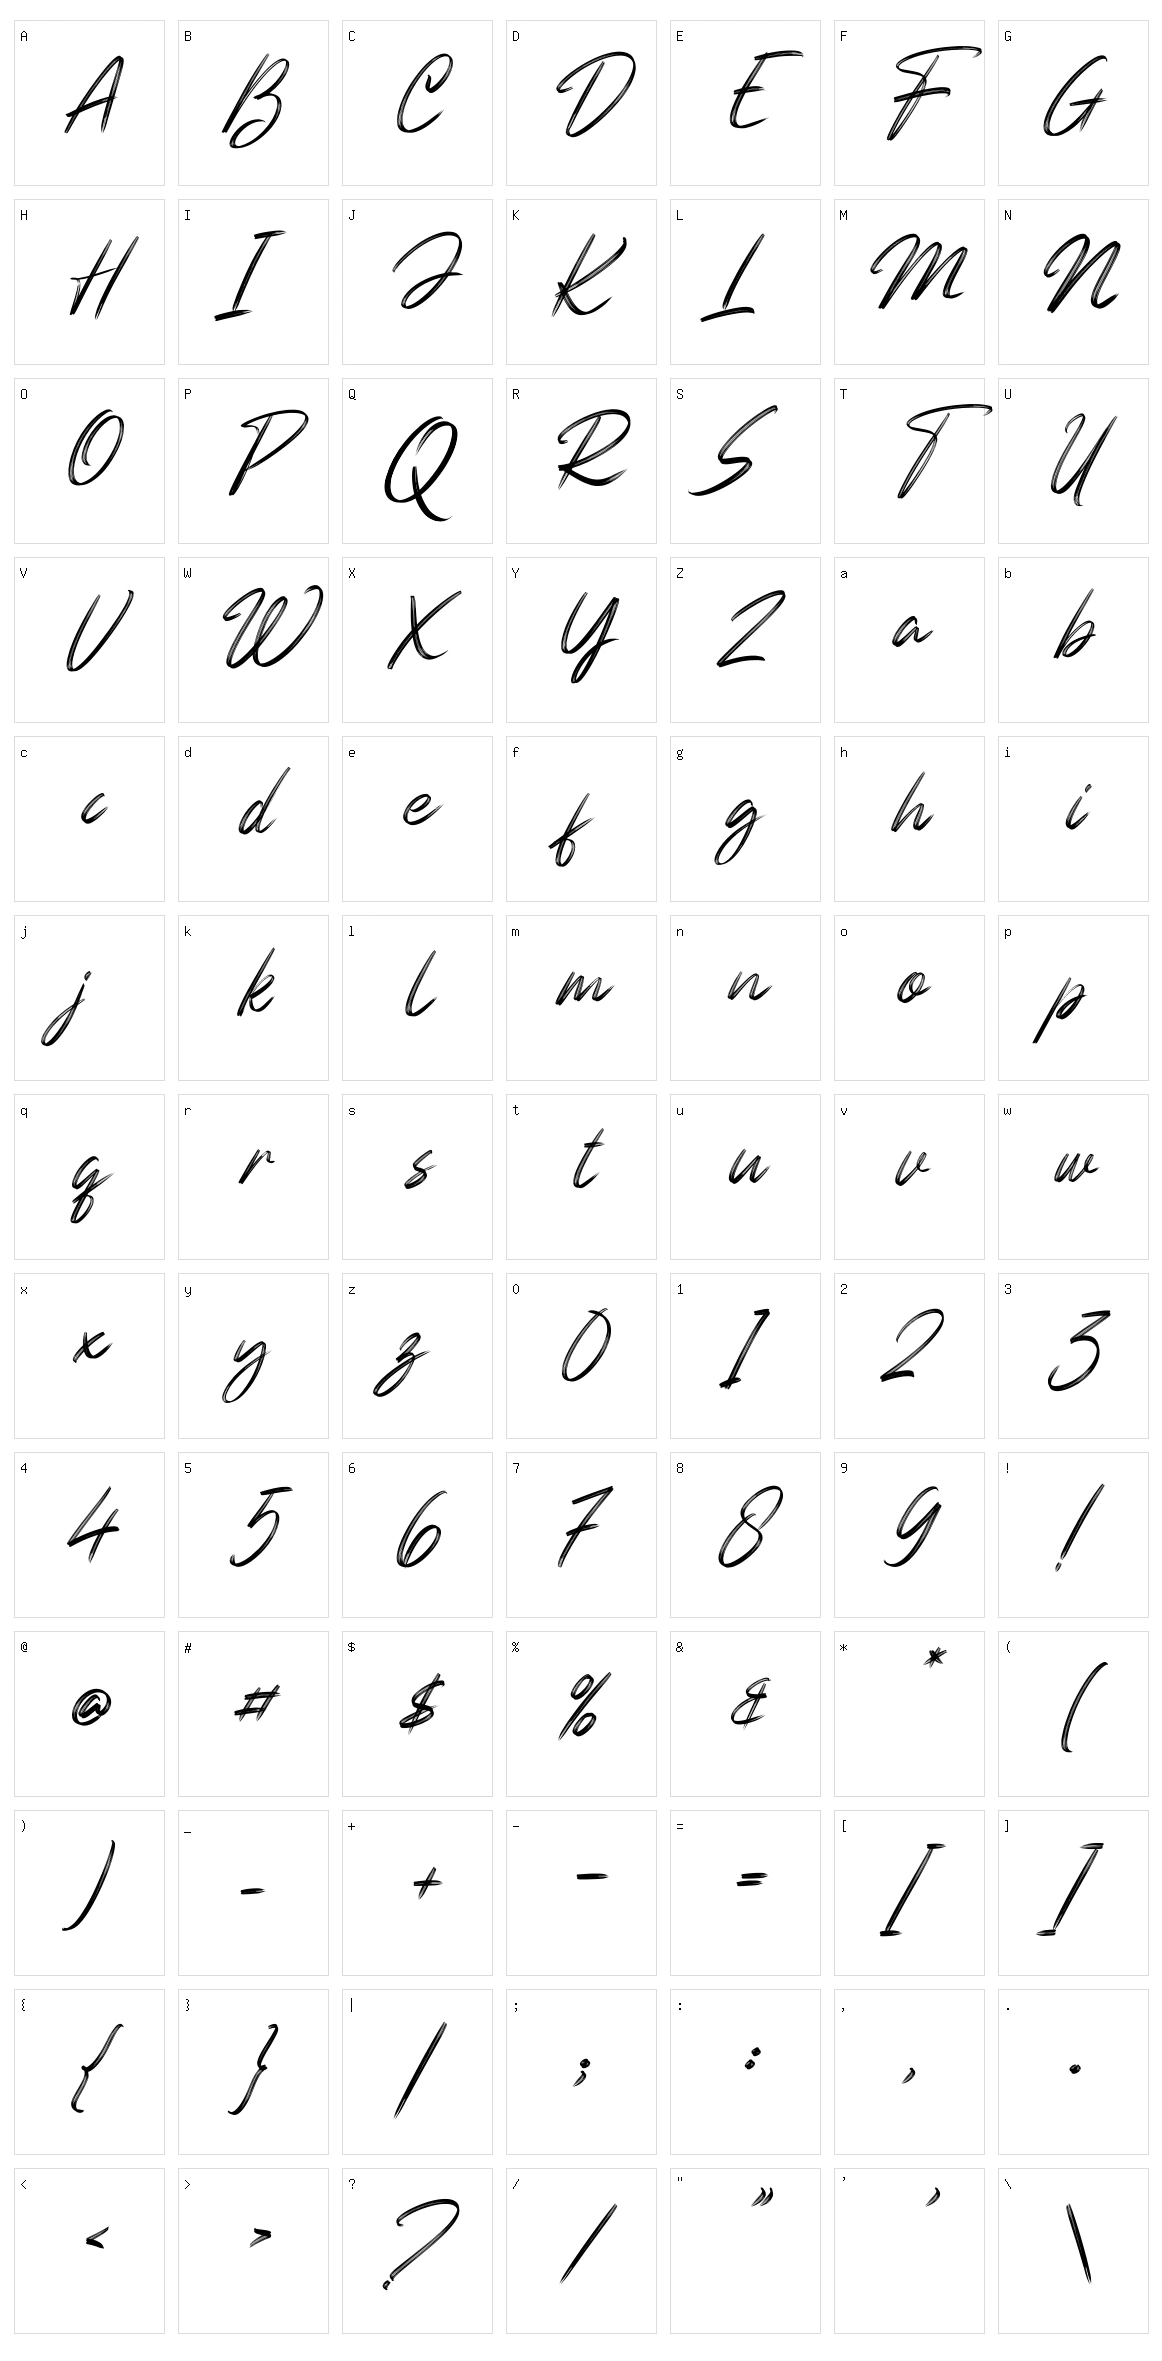 A B C D E F G
A B C D E F G
H I J K L M N
H I J K L M N
O P Q R S T U
O P Q R S T U
V W X Y Z a b
V W X Y Z a b
c d e f g h i
c d e f g h i
j k l m n o p
j k l m n o p
q r s t u v w
q r s t u v w
x y z 0 1 2 3
x y z 0 1 2 3
4 5 6 7 8 9 !
4 5 6 7 8 9 !
@ # $ % & * (
@ # $ % & * (
) _ + - = [ ]
) _ + - = [ ]
{ } | ; : , .
{ } | ; : , .
< > ? / " ' \
< > ? / " ' \